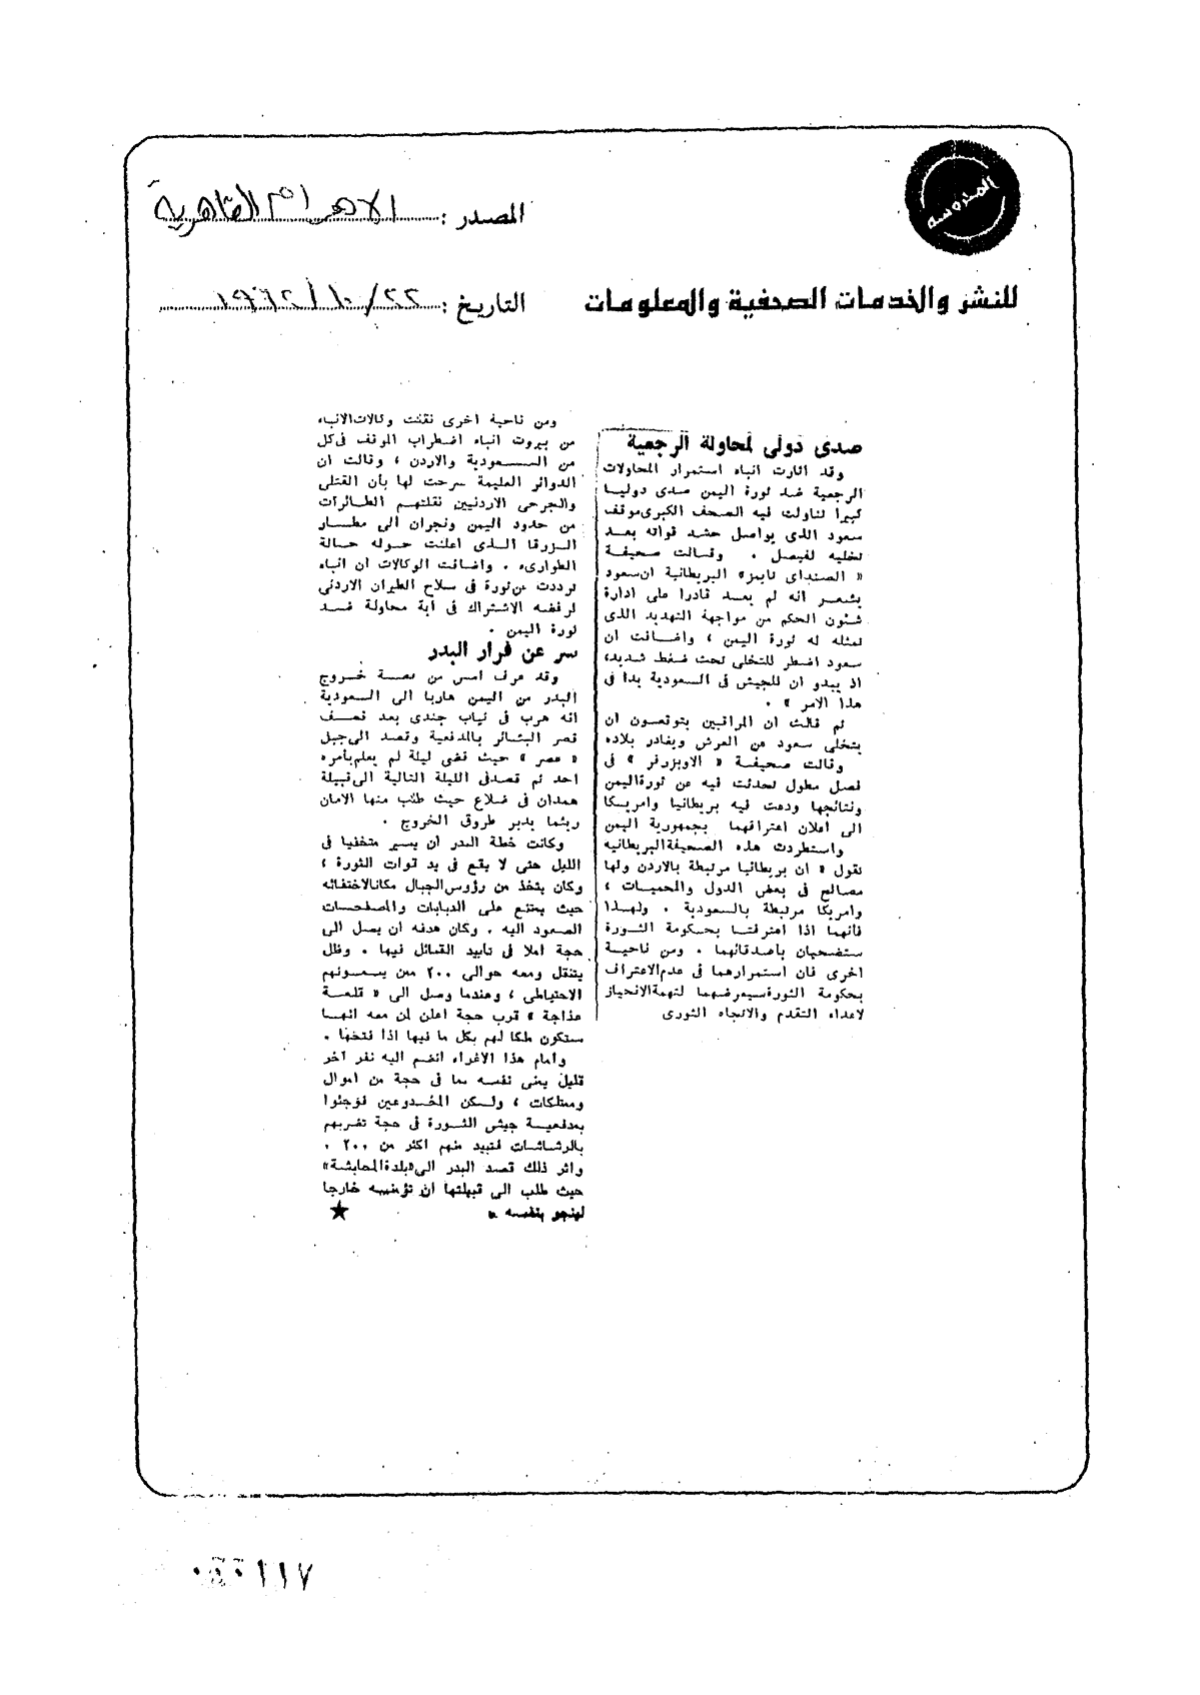 المدروسه
المصدر : الاهرام القاهرية
للنشر والخدمات الصحفية والمعلومات
التاريخ : ٢٢/١٠/١٩٦٢
صدى دولى لمحاولة الرجعية
وقد اثارت انباء استمرار المحاولات
الرجعية ضد ثورة اليمن صدى دوليا
كبيرا تناولت فيه الصحف الكبرى موقف
سعود الذى يواصل حشد قواته بعد
تخليه لفيصل . وقالت صحيفة
« الصنداى تايمز» البريطانية ان سعود
يشعر انه لم يعد قادرا على ادارة
شئون الحكم من مواجهة التهديد الذى
تمثله له ثورة اليمن ، واضافت ان
سعود اضطر للتخلى تحت ضغط شديد،
اذ يبدو ان للجيش فى السعودية يدا فى
هذا الامر » .
ثم قالت ان المراقبين يتوقعون ان
يتخلى سعود عن العرش ويغادر بلاده
وقالت صحيفة « الاوبزرفر » فى
فصل مطول تحدثت فيه عن ثورة اليمن
ونتائجها ودعت فيه بريطانيا وامريكا
الى اعلان اعترافهما بجمهورية اليمن
واستطردت هذه الصحيفة البريطانيه
تقول « ان بريطانيا مرتبطة بالاردن ولها
مصالح فى بعض الدول والمحميات ،
وامريكا مرتبطة بالسعودية . ولهذا
فانهما اذا اعترفتا بحكومة الثورة
ستضحيان باصدقائهما . ومن ناحية
اخرى فان استمرارهما فى عدم الاعتراف
بحكومة الثورة سيعرضهما لتهمة الانحياز
لاعداء التقدم والاتجاه الثورى
ومن ناحية اخرى نقلت وكالات الانباء
من بيروت انباء اضطراب الموقف فى كل
من السعودية والاردن ، وقالت ان
الدوائر العليمة صرحت لها بأن القتلى
والجرحى الاردنيين نقلتهم الطائرات
من حدود اليمن ونجران الى مطار
الزرقا الذى اعلنت حوله حالة
الطوارىء . واضافت الوكالات ان انباء
ترددت عن ثورة فى سلاح الطيران الاردنى
لرفضه الاشتراك فى اية محاولة ضد
ثورة اليمن .
سر عن فرار البدر
وقد عرف امس من قصة خروج
البدر من اليمن هاربا الى السعودية
انه هرب فى ثياب جندى بعد قصف
قصر البشائر بالمدفعية وقصد الى جبل
« عصر » حيث قضى ليلة لم يعلم بأمره
احد ثم قصد فى الليلة التالية الى قبيلة
همدان فى ضلاع حيث طلب منها الامان
ريثما يدبر طروق الخروج .
وكانت خطة البدر ان يسير متخفيا فى
الليل حتى لا يقع فى يد قوات الثورة ،
وكان يتخذ من رؤوس الجبال مكانا لاختفائه
حيث يمتنع على الدبابات والمصفحات
الصعود اليه . وكان هدفه ان يصل الى
حجة املا فى تأييد القبائل فيها . وظل
يتنقل ومعه حوالى ٢٠٠ ممن يسمونهم
الاحتياطى ، وعندما وصل الى « قلعة
عذاجة » قرب حجة اعلن لمن معه انها
ستكون ملكا لهم بكل ما فيها اذا فتحها .
وأمام هذا الاغراء انضم اليه نفر آخر
قليل يمنى نفسه بما فى حجة من اموال
وممتلكات ، ولكن المخدوعين فوجئوا
بمدفعية جيش الثورة فى حجة تضربهم
بالرشاشات فتبيد منهم اكثر من ٢٠٠ .
واثر ذلك قصد البدر الى «بلدة المحابشة»
حيث طلب الى قبيلتها ان تؤمنه خارجا
لينجو بنفسه « ★